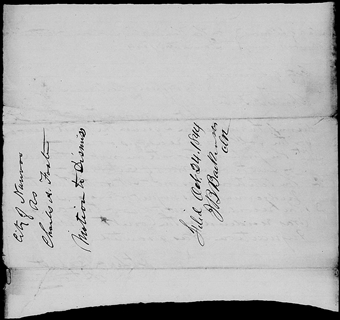 City of Nauvoo
vs
Charles A. Foster
Motion to Dismiss
Filed Oct. 24. 1844
J B Backenstos
Clk